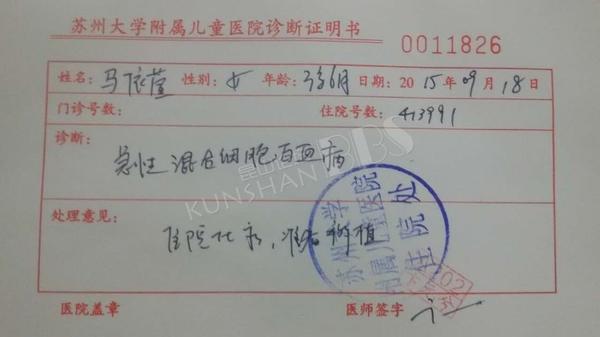 苏州大学附属儿童医院诊断证明书
0011826
姓名: 马依萱 性别: 女 年龄: 3岁6月 日期: 2015年09月18日
门诊号数: 住院号数: 413991
诊断:
急性混合细胞白血病
昆山论坛BBS
KUNSHAN
处理意见:
住院化疗,准备移植
苏州大学附属儿童医院
住院处
医院盖章 医师签字